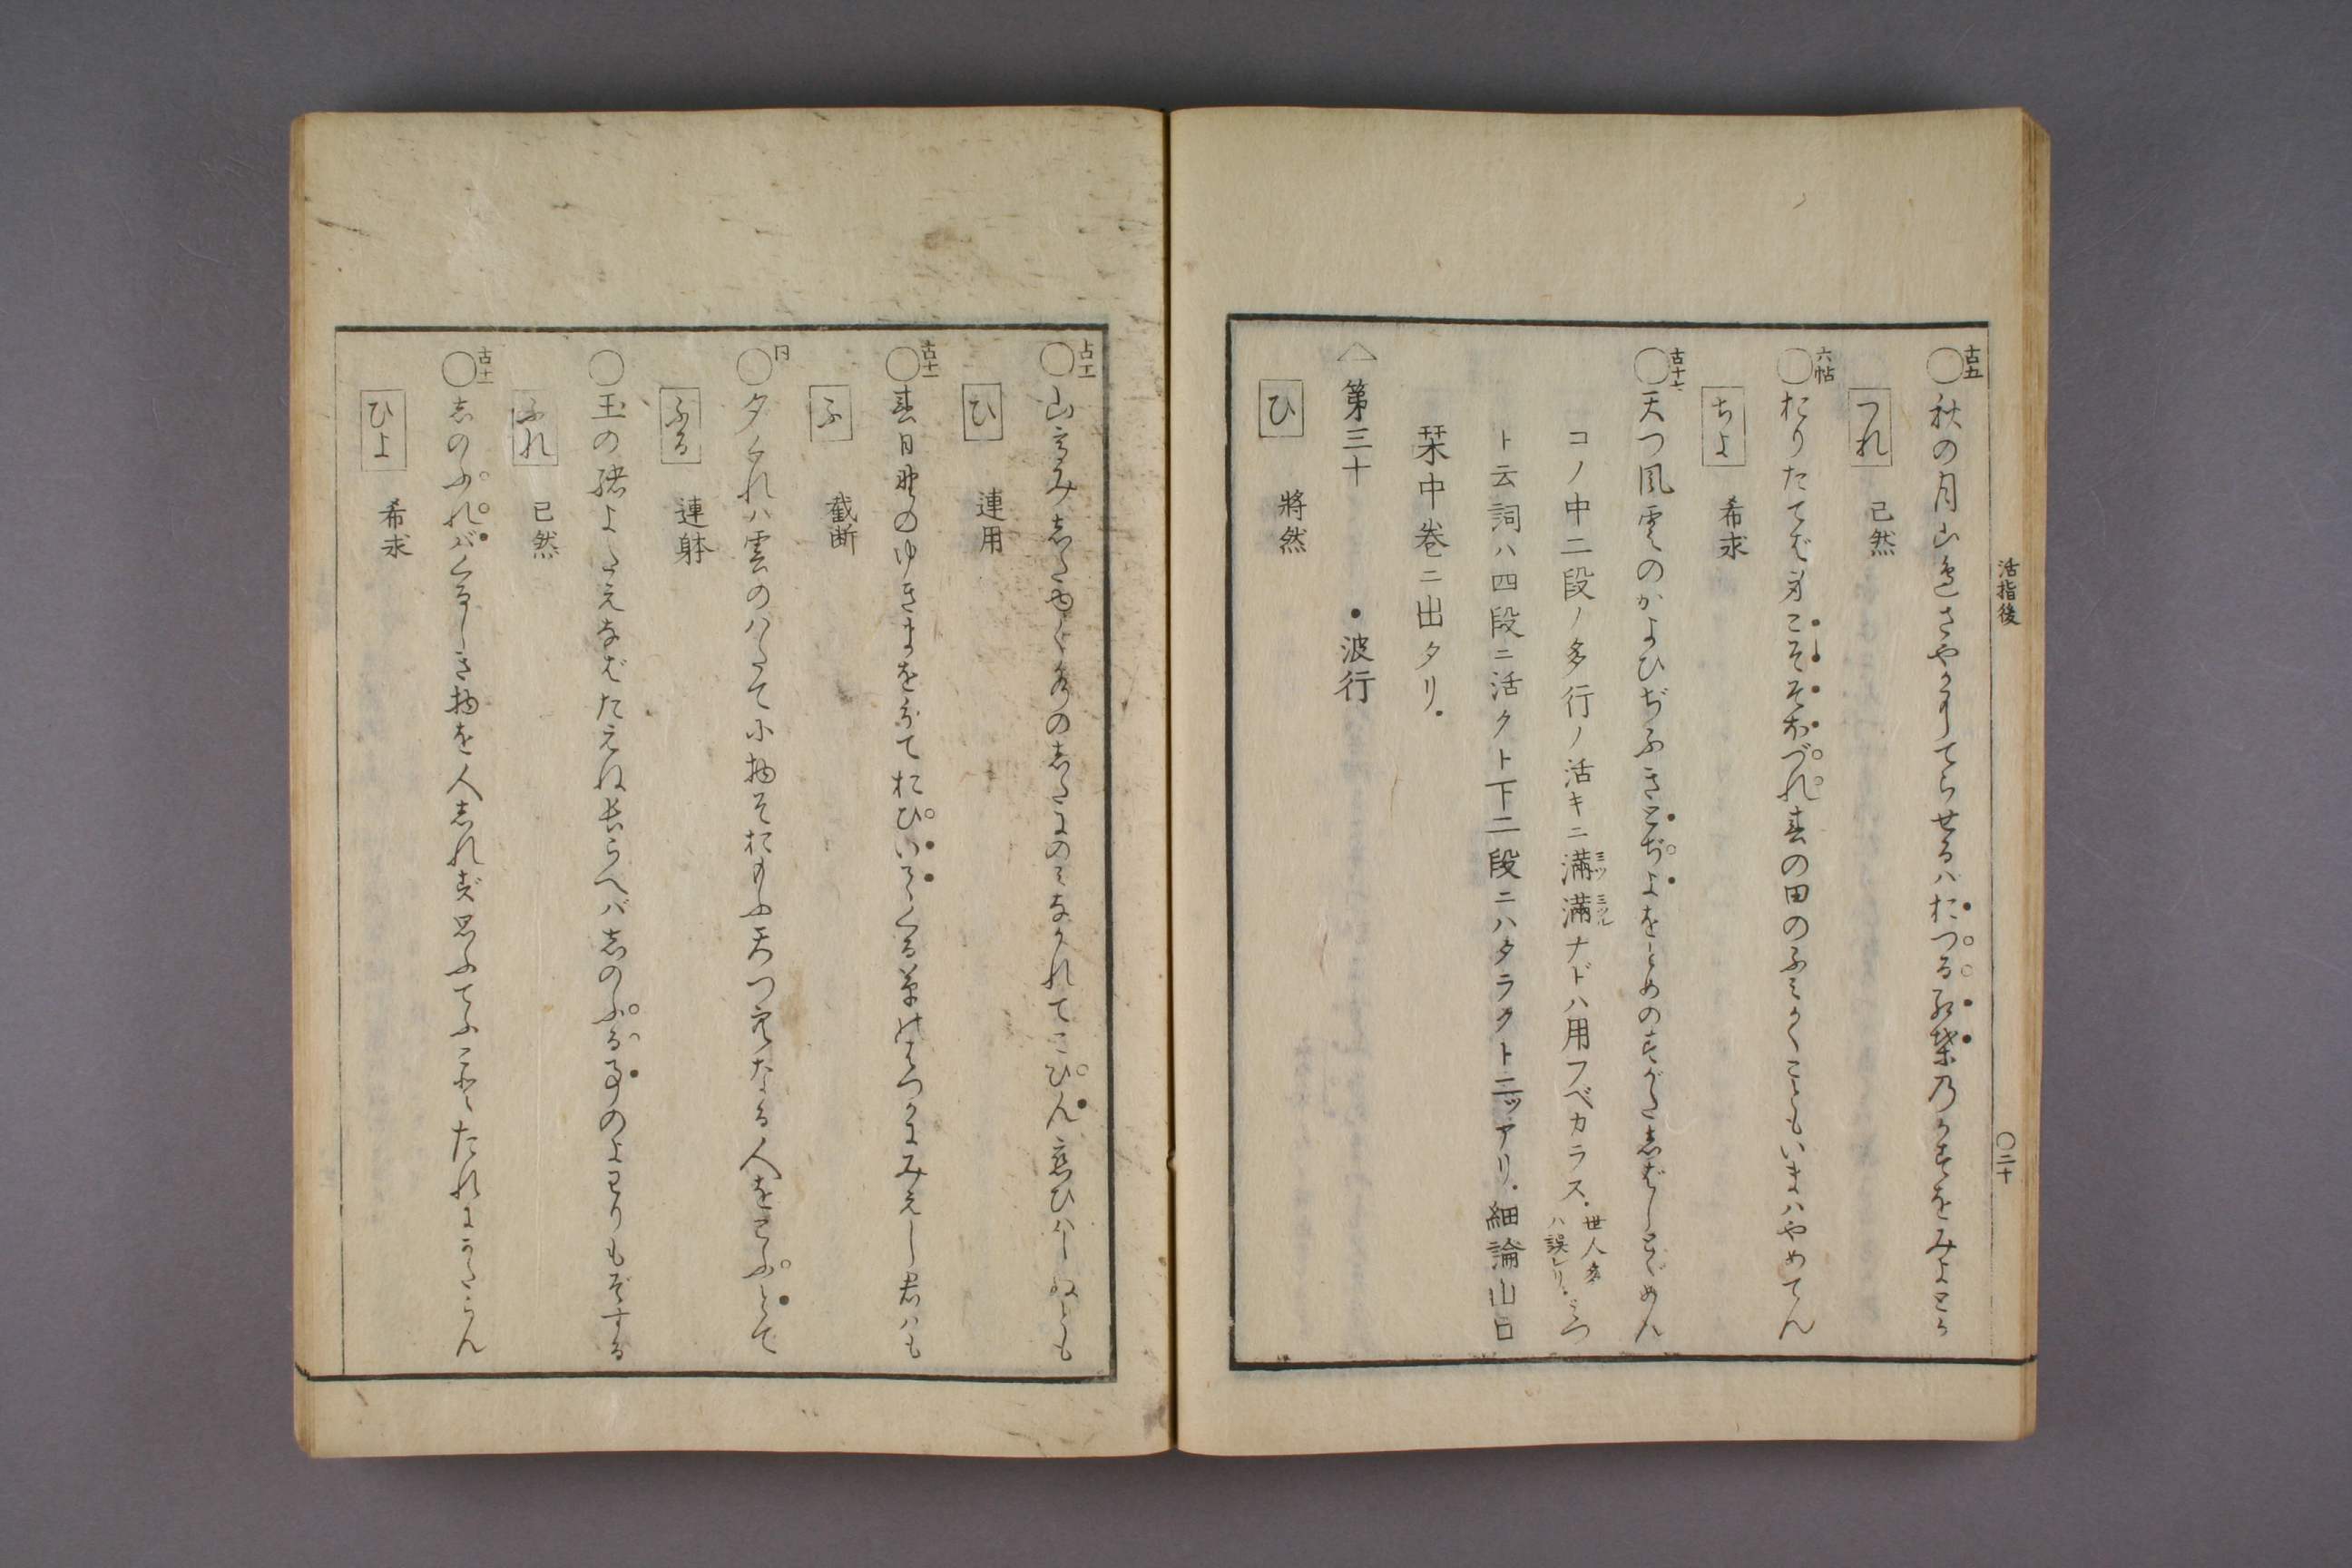 活指後
〇二十
古五
〇秋の月山邊さやかにてらせるハおつる紅葉乃かずをみよとか
つれ 已然
六帖
〇おりたてば身こそそおづれ春の田のふみかくこともいまハやめてん
ちよ 希求
古十七
〇天つ風雲のかよひぢふきとぢよをとめのすがたしばしとゞめん
コノ中二段ノ多行ノ活キニ滿ミツ滿ミツルナドハ用フベカラス．世人多ハ誤レリ．みつ
ト云詞ハ四段ニ活クト下二段ニハタラクト二ッアリ．細論山口
栞中巻ニ出タリ．
△第三十 ・波行
ひ 將然
古十一
〇山高みした由く水のしたにのミなかれてこひん恋ひハしぬとも
ひ 連用
古十一
〇春日野のゆきまをわけておひいでくる草のはつかにみえし君ハも
ふ 截断
同
〇夕くれハ雲のハたてに物そおもふ天つ空なる人をこふとて
ふる 連躰
〇玉の緒よたえなばたえね長らへバしのふる事のよわりもぞする
ふれ 已然
古十一
〇しのふれバくるしき物を人しれず思ふてふことたれにかたらん
ひよ 希求